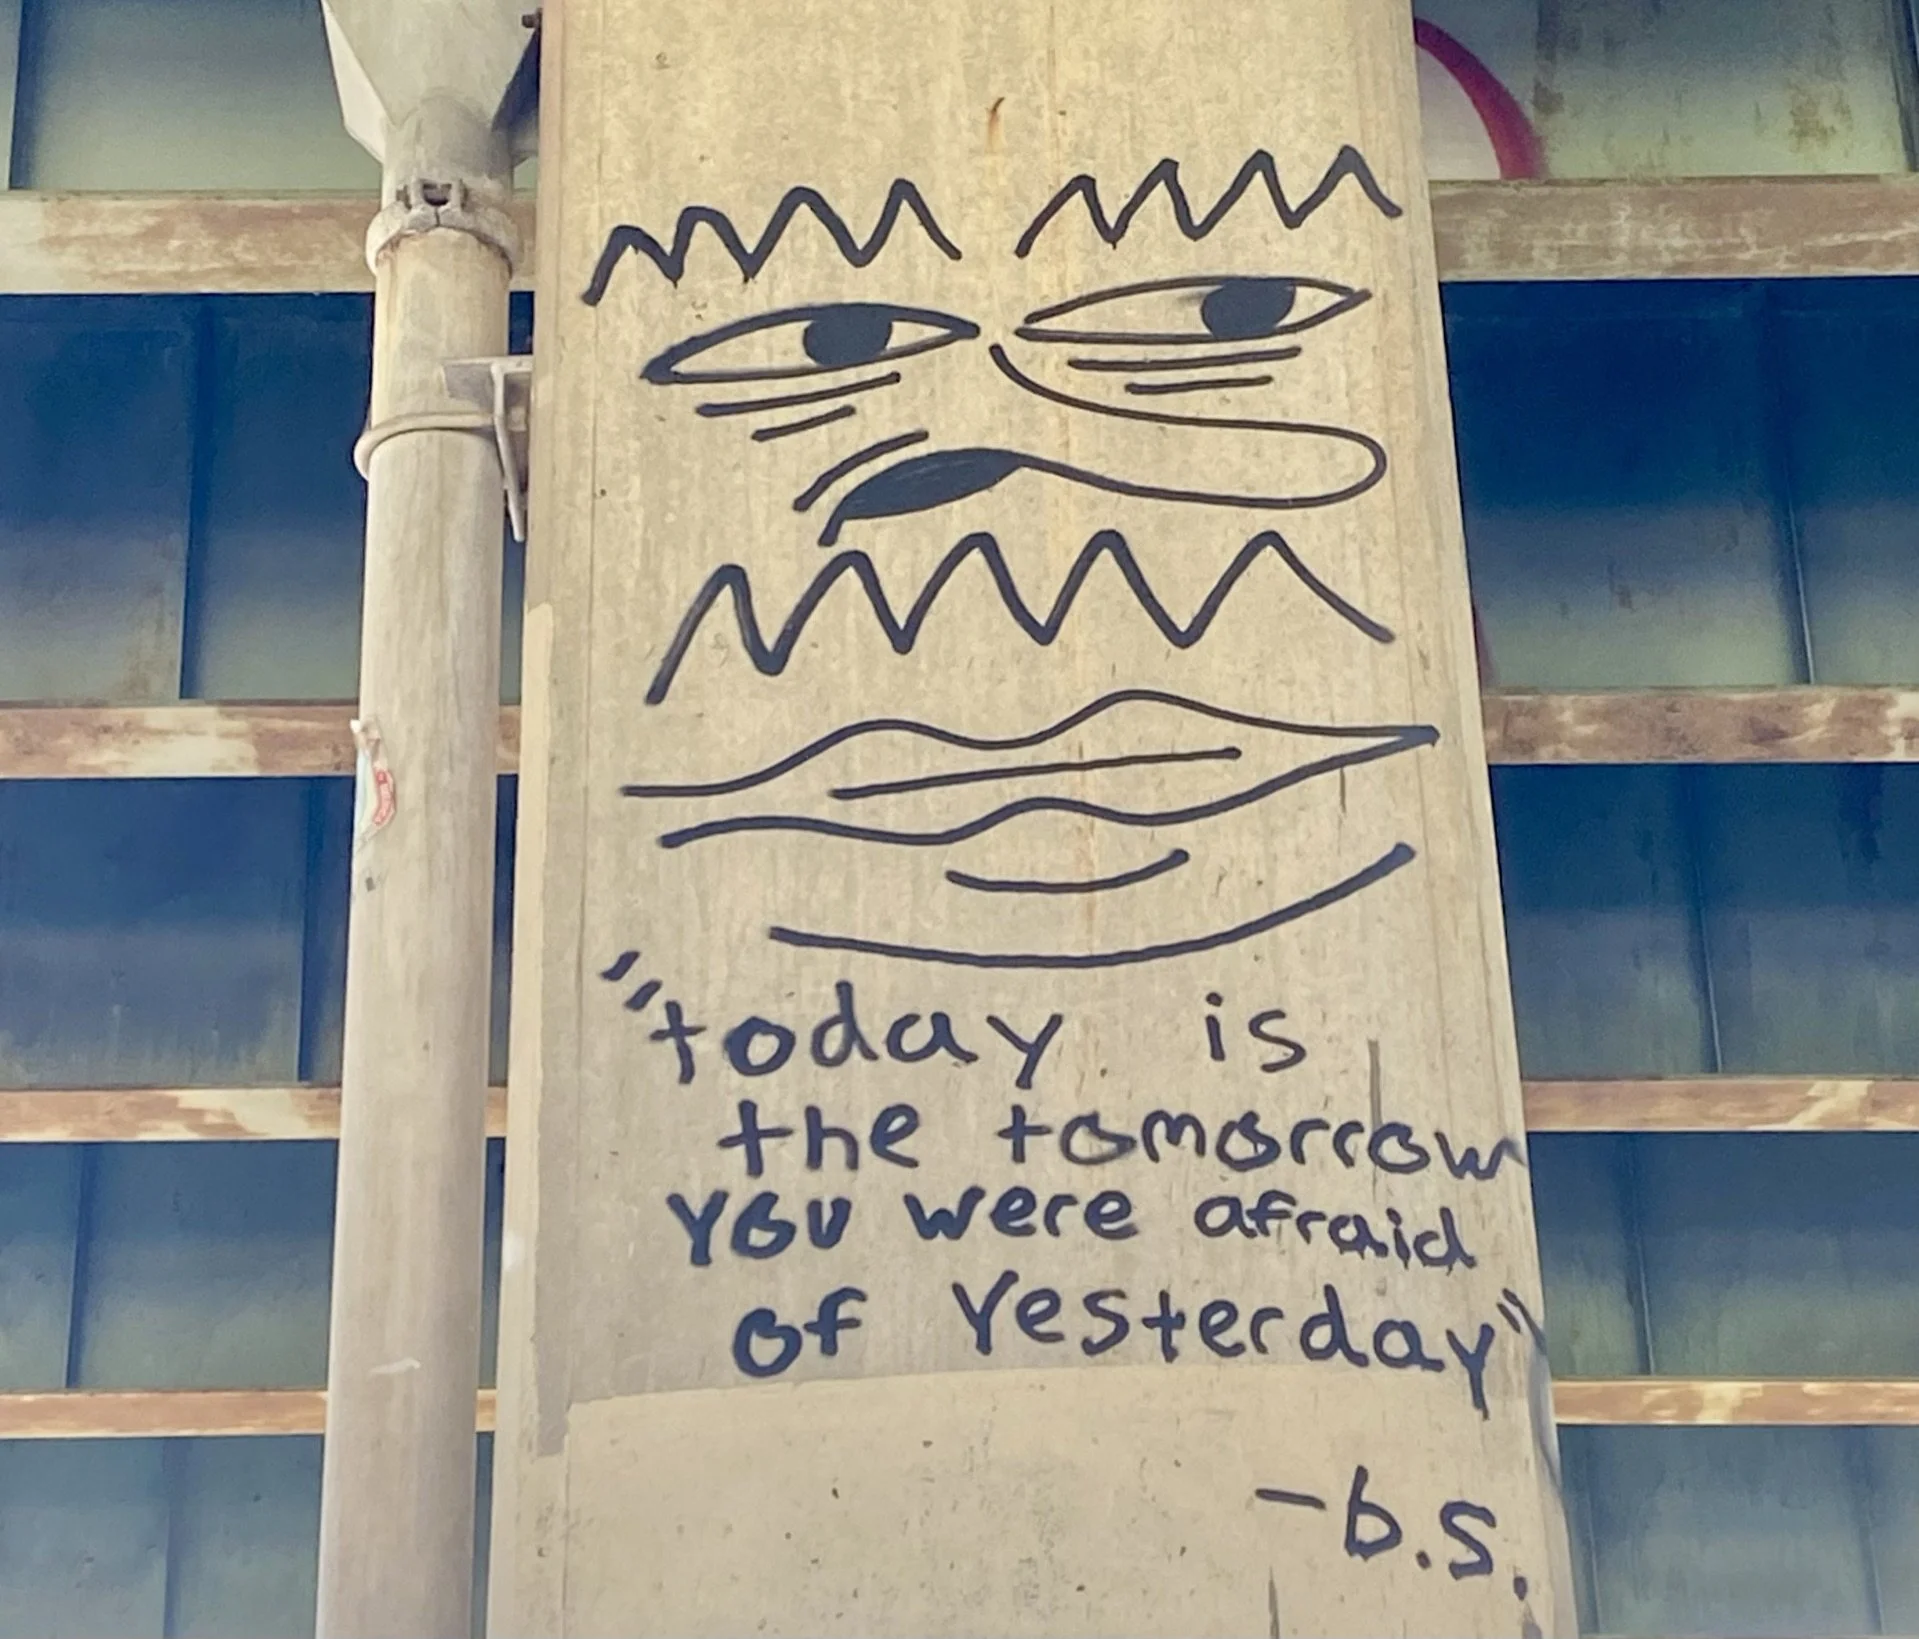 "today is
the tomorrow
you were afraid
of Yesterday"
-b.s.